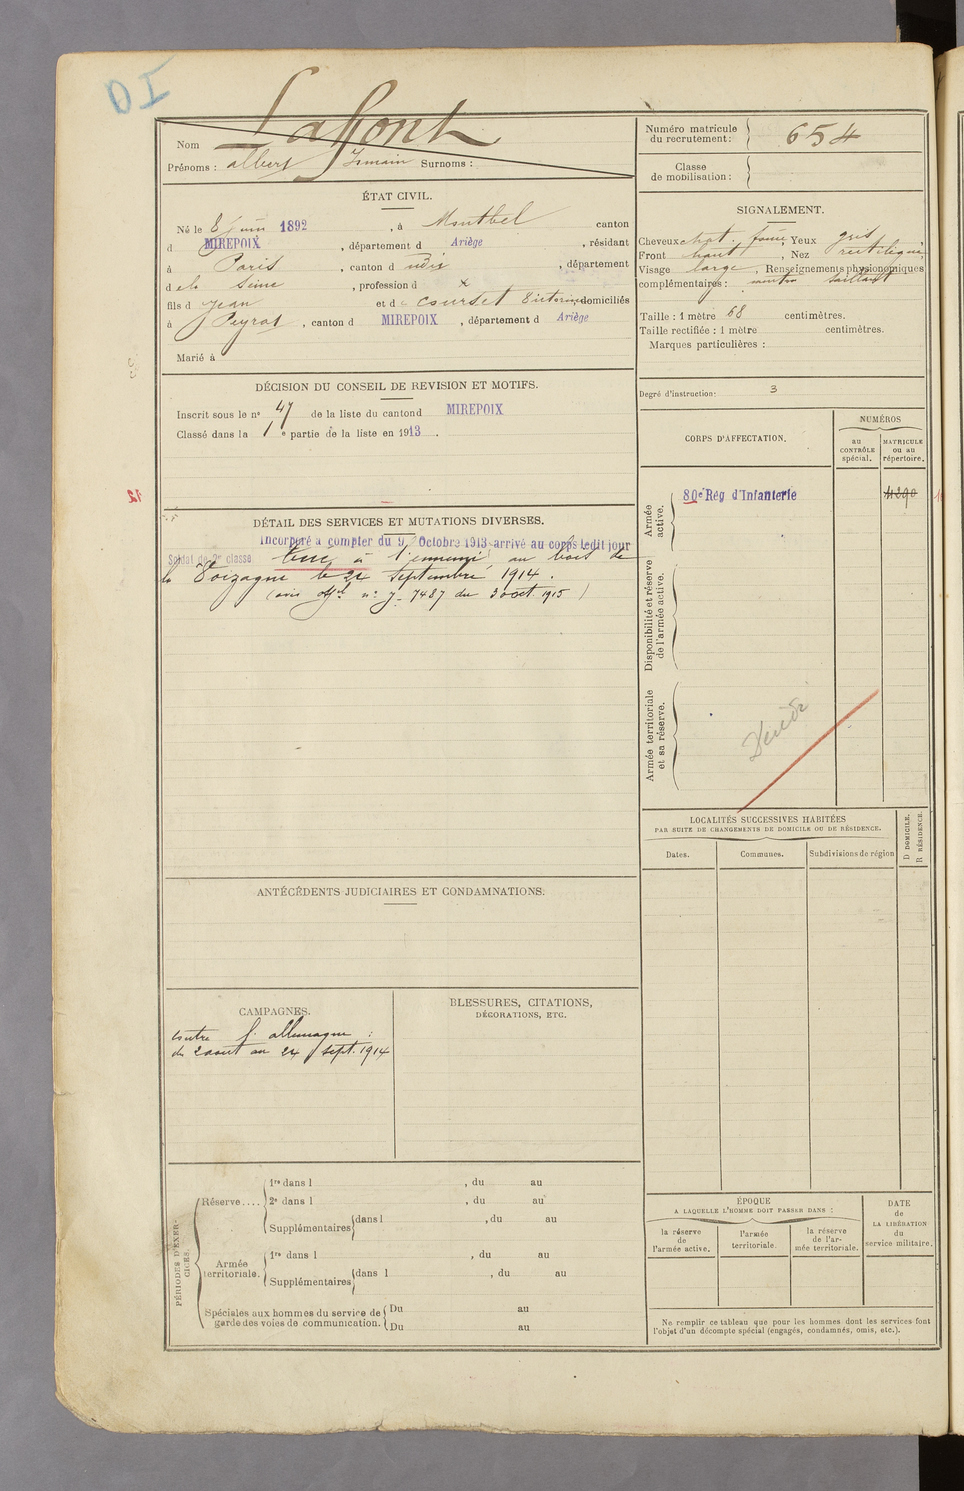 DI
Nom Laffont
Prénoms : albert Surnoms :
Numéro matricule du recrutement : 654
Classe de mobilisation :
ÉTAT CIVIL.
Né le 8 juin 1892, à Montbel canton
d MIREPOIX, département d Ariège, résidant
à Paris, canton d udix, département
d ela Seine, profession d x
fils d Jean et d e Courset domiciliés
à Peyrat, canton d MIREPOIX, département d Ariège
Marié à
SIGNALEMENT.
Cheveux chat. foncé, Yeux gris
Front haut, Nez rectiligne,
Visage large, Renseignements physionomiques
complémentaires : menton saillant
Taille : 1 mètre 68 centimètres.
Taille rectifiée : 1 mètre centimètres.
Marques particulières :
Degré d'instruction : 3
DÉCISION DU CONSEIL DE REVISION ET MOTIFS.
Inscrit sous le n° 47 de la liste du canton d MIREPOIX
Classé dans la 1e partie de la liste en 1913.
12
DÉTAIL DES SERVICES ET MUTATIONS DIVERSES.
Incorporé à compter du 9 Octobre 1913 arrivé au corps ledit jour
Soldat de 2e classe tué à l'ennemi au bois de
la Voizagne le 24 septembre 1914.
(avis offel n° J- 7487 du 3 oct. 1915)
CORPS D'AFFECTATION.
NUMÉROS
au CONTRÔLE spécial.
MATRICULE ou au répertoire.
Armée active.
80e Rég d'Infanterie
4290
Disponibilité et réserve de l'armée active.
Armée territoriale et sa réserve.
LOCALITÉS SUCCESSIVES HABITÉES
PAR SUITE DE CHANGEMENTS DE DOMICILE OU DE RÉSIDENCE.
Dates.
Communes.
Subdivisions de région
D DOMICILE.
R RÉSIDENCE.
ANTÉCÉDENTS JUDICIAIRES ET CONDAMNATIONS.
CAMPAGNES.
contre l'allemagne :
du 2 aout au 24 sept. 1914
BLESSURES, CITATIONS,
DÉCORATIONS, ETC.
PÉRIODES D'EXERCICES.
Réserve....
1re dans l , du au
2e dans l , du au
Supplémentaires dans l , du au
Armée territoriale.
1re dans l , du au
Supplémentaires dans l , du au
Spéciales aux hommes du service de garde des voies de communication.
Du au
Du au
ÉPOQUE
A LAQUELLE L'HOMME DOIT PASSER DANS :
la réserve de l'armée active.
l'armée territoriale.
la réserve de l'armée territoriale.
DATE de LA LIBÉRATION du service militaire.
Ne remplir ce tableau que pour les hommes dont les services font
l'objet d'un décompte spécial (engagés, condamnés, omis, etc.).